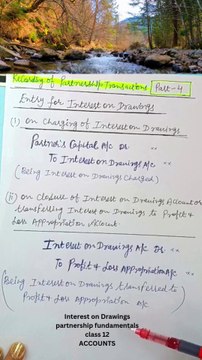 Recording of Partnership Transactions Part-4
Entry for Interest on Drawings
(i) On Charging of Interest on Drawings
Partner's Capital A/c Dr
To Interest on Drawings A/c
(Being Interest on Drawings Charged)
(ii) On Closure of Interest on Drawings Account or
transferring Interest on Drawings to Profit &
Loss Appropriation Account
Interest on Drawings A/c Dr
To Profit & Loss Appropriation A/c
(Being Interest on Drawings transferred to
Profit & Loss Appropriation A/c
Interest on Drawings
partnership fundamentals
class 12
ACCOUNTS